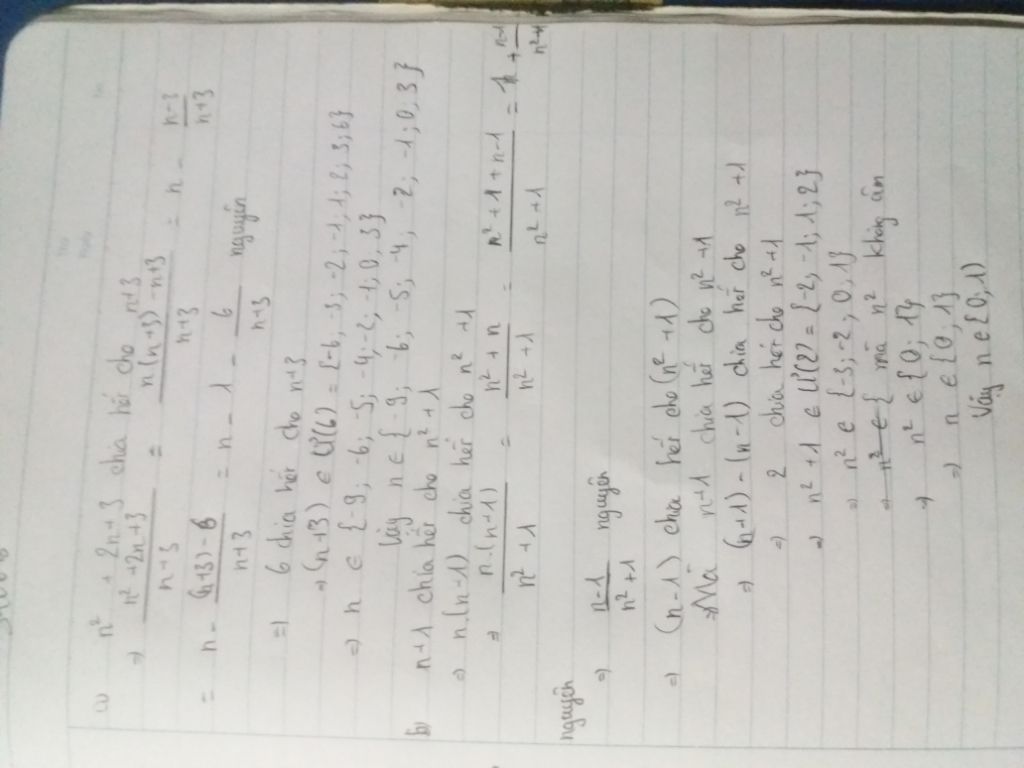 a) n² + 2n+3 chia hết cho n+3
=> n²+2n+3 / n+3 = n(n+3) -n+3 / n+3 = n - n-3 / n+3
= n - (n+3)-6 / n+3 = n - 1 - 6 / n+3 nguyên
=) 6 chia hết cho n+3
=> (n+3) ∈ Ư(6) = {-6; -3; -2; -1; 1; 2; 3; 6}
=> n ∈ {-9; -6; -5; -4; -2; -1; 0; 3}
Vậy n ∈ {-9; -6; -5; -4; -2; -1; 0; 3}
b) n+1 chia hết cho n²+1
=> n.(n-1) chia hết cho n²+1
=> n.(n+1) / n²+1 = n²+n / n²+1 = n²+1+n-1 / n²+1 = 1 + n-1 / n²+1
nguyên
=> n-1 / n²+1 nguyên
=) (n-1) chia hết cho (n²+1)
Mà n+1 chia hết cho n²+1
=> (n+1) - (n-1) chia hết cho n²+1
=) 2 chia hết cho n²+1
=> n²+1 ∈ Ư(2) = {-2, -1; 1; 2}
=> n² ∈ {-3; -2, 0, 1}
=> n² ∈ { mà n² không âm
=> n² ∈ {0; 1}
=) n ∈ {0; 1}
Vậy n ∈ {0; 1}